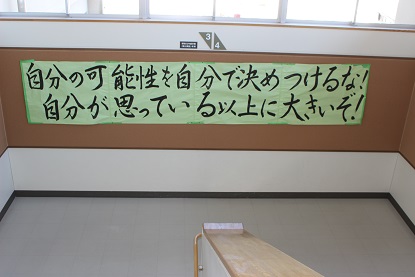 3
4
自分の可能性を自分で決めつけるな!
自分が思っている以上に大きいぞ!